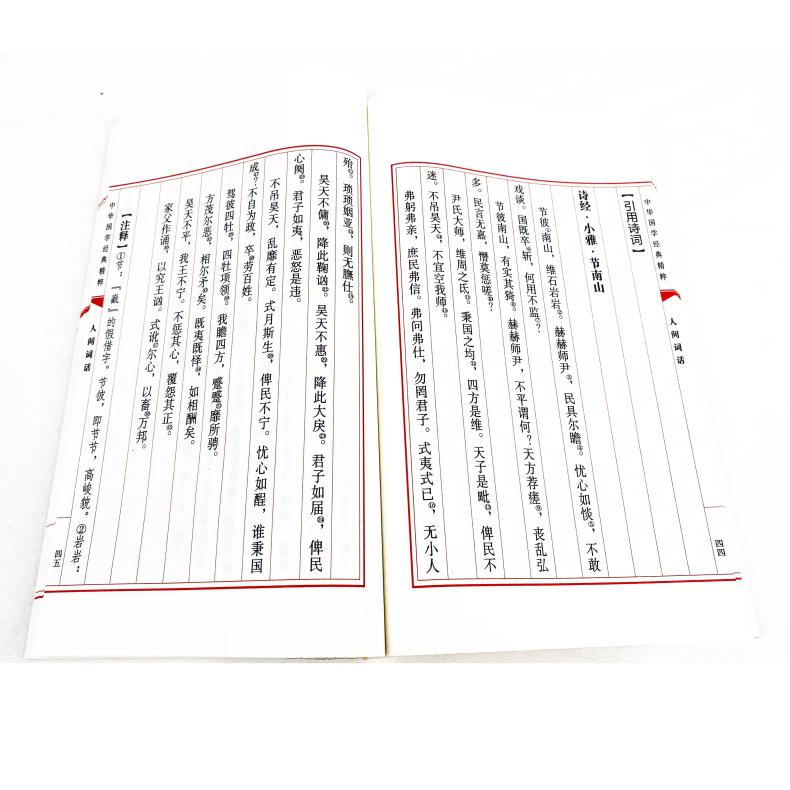 中华国学经典精粹
人间词话
四四
【引用诗词】
诗经·小雅·节南山
节彼南山，维石岩岩。赫赫师尹，民具尔瞻。忧心如惔，不敢
戏谈。国既卒斩，何用不监？
节彼南山，有实其猗。赫赫师尹，不平谓何？天方荐瘥，丧乱弘
多。民言无嘉，憯莫惩嗟？
尹氏大师，维周之氐。秉国之均，四方是维。天子是毗，俾民不
迷。不吊昊天，不宜空我师。
弗躬弗亲，庶民弗信。弗问弗仕，勿罔君子。式夷式已，无小人
殆。琐琐姻亚，则无膴仕。
昊天不傭，降此鞠讻。昊天不惠，降此大戾。君子如届，俾民
心阕。君子如夷，恶怒是违。
不吊昊天，乱靡有定。式月斯生，俾民不宁。忧心如酲，谁秉国
成？不自为政，卒劳百姓。
驾彼四牡，四牡项领。我瞻四方，蹙蹙靡所骋。
方茂尔恶，相尔矛矣。既夷既怿，如相酬矣。
昊天不平，我王不宁。不惩其心，覆怨其正。
家父作诵，以究王讻。式讹尔心，以畜万邦。
【注释】①节：『巀』的假借字。节彼，即节节，高峻貌。②岩岩：
中华国学经典精粹
人间词话
四五